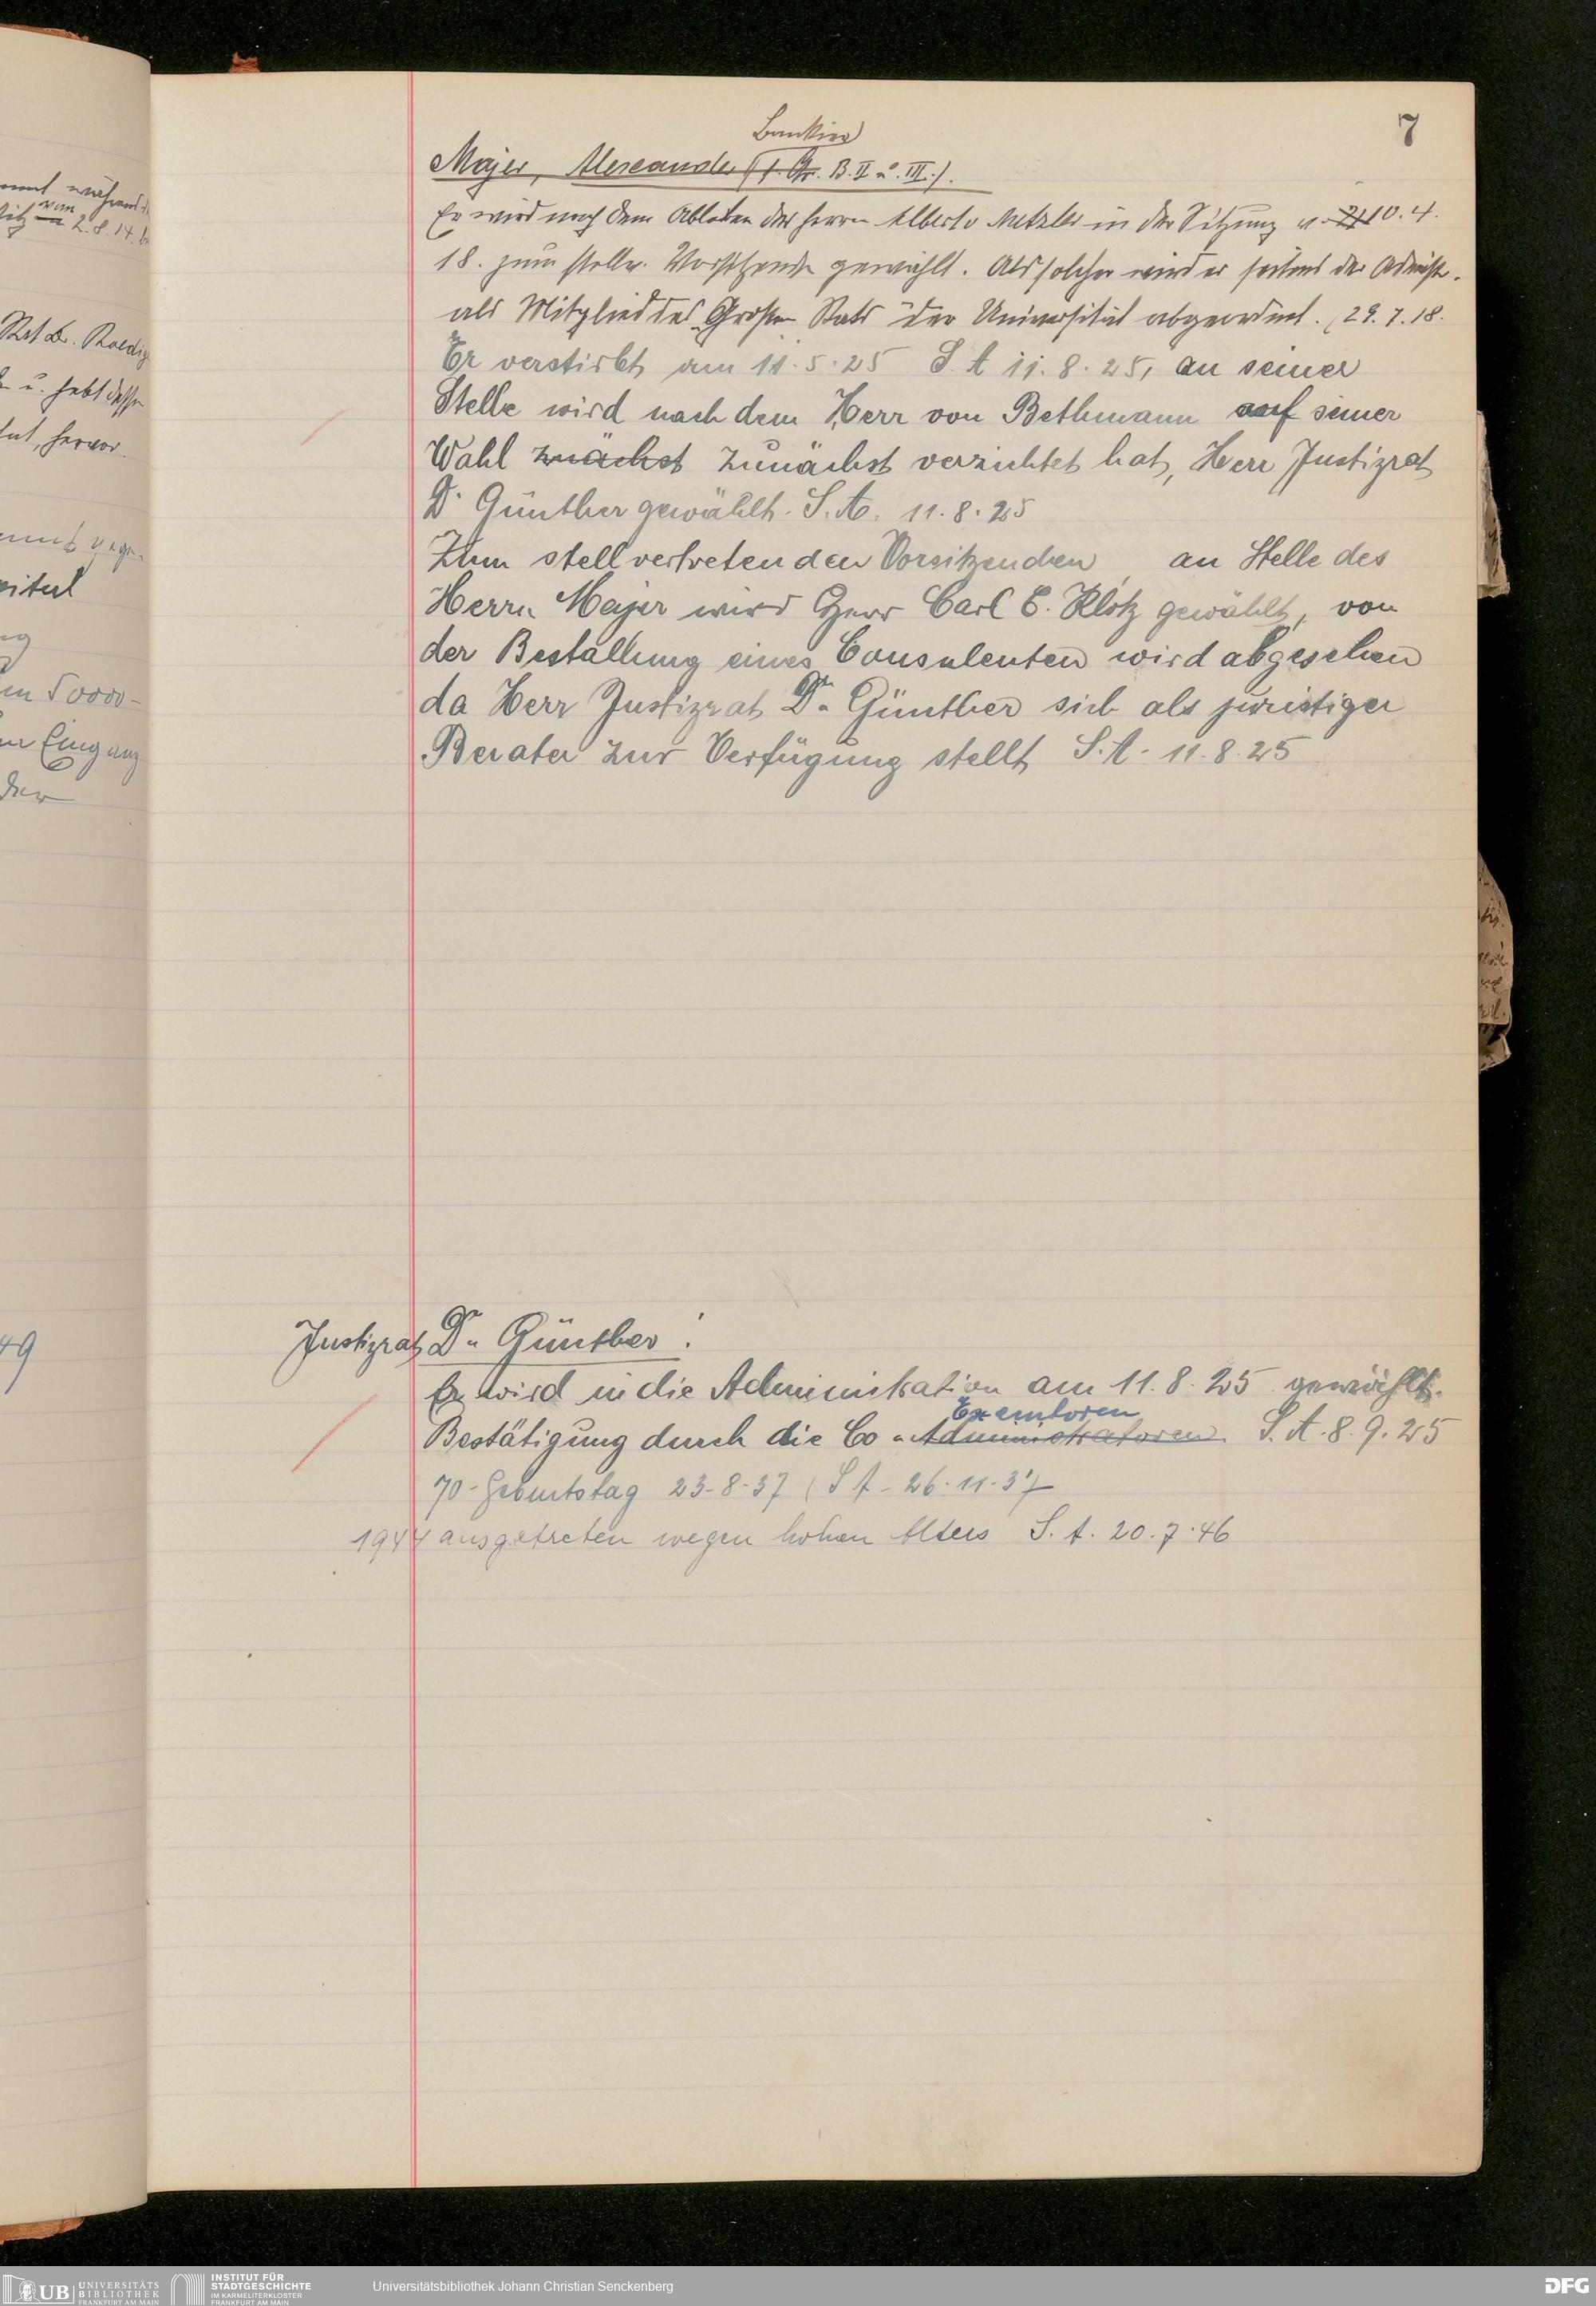 mmt während d.
sitz von 2.8.14. b
Rat Dr. Roedig
u. hebt dessen
tut, hervor.
pital
in 50000-
Eingang
der
49
7
Bankier
Majer, Alexander (f. Gr. B. II u. III.).
Er wird nach dem Ableben des Herrn Albert v Metzler in der Sitzung v. 10. 4.
18. zum stellv. Vorsitzenden gewählt. Als solcher wird er seitens der Administr.
als Mitglied des Großen Rats der Universität abgeordnet. (29. 7. 18.
Er verstirbt am 11. 5. 25 S. A 11. 8. 25, an seiner
Stelle wird nach dem Herr von Bethmann auf seiner
Wahl znächst zunächst verzichtet hat, Herr Justizrat
Dr Günther gewählt. S. A. 11. 8. 25
Zum stellvertretenden Vorsitzenden, an Stelle des
Herrn Majer wird Herr Carl C. Klotz gewählt, von
der Bestallung eines Consulenten wird abgesehen
da Herr Justizrat Dr. Günther sich als juristiger
Berater zur Verfügung stellt S. A. 11. 8. 25
Justizrat Dr. Günther.
Er wird in die Administration am 11. 8. 25 gewählt.
Exemtoren
Bestätigung durch die Co-Administratoren. S. A. 8. 9. 25
70-Geburtstag 23-8-37 (S A - 26. 11. 37)
1944 ausgetreten wegen hohen Alters S. A. 20. 7. 46
UB UNIVERSITÄTS
BIBLIOTHEK
FRANKFURT AM MAIN
INSTITUT FÜR
STADTGESCHICHTE
IM KARMELITERKLOSTER
FRANKFURT AM MAIN
Universitätsbibliothek Johann Christian Senckenberg
DFG